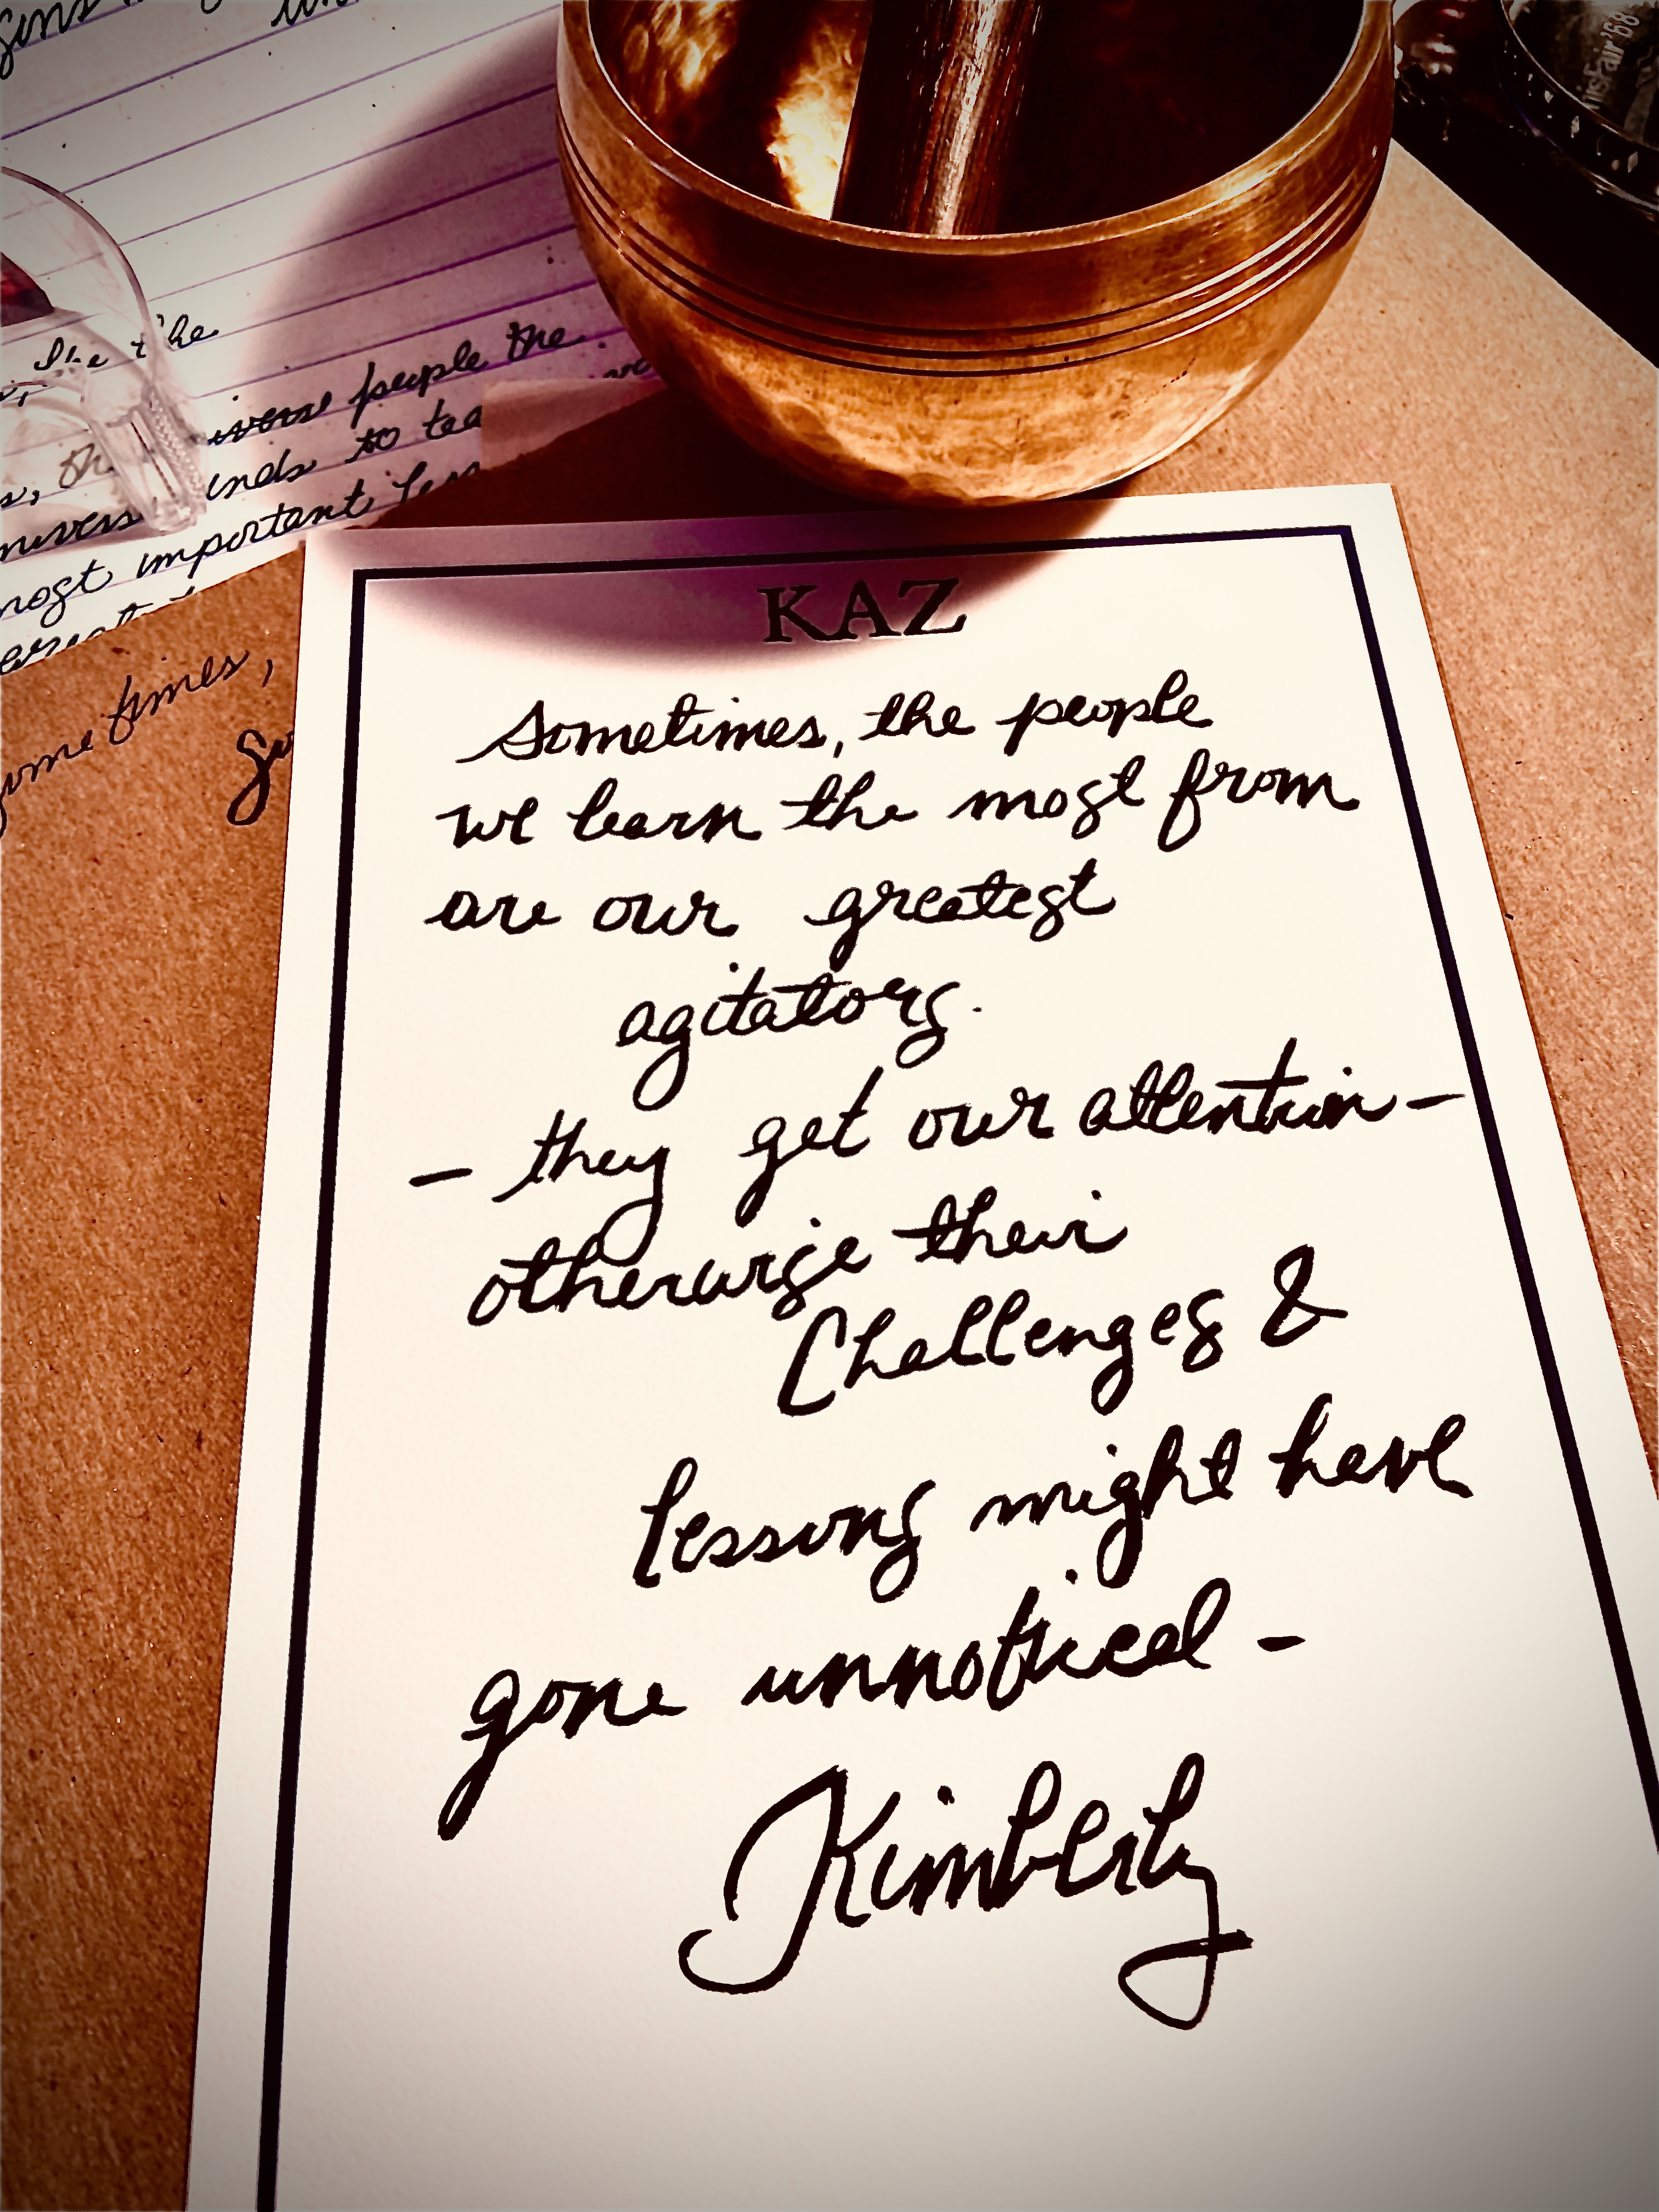 the
iverse people the
inds to tea
most important less
Sometimes,
HisFair '68
KAZ
Sometimes, the people
we learn the most from
are our greatest
agitators.
- they get our attention -
otherwise their
Challenges &
lessons might have
gone unnoticed -
Kimberly